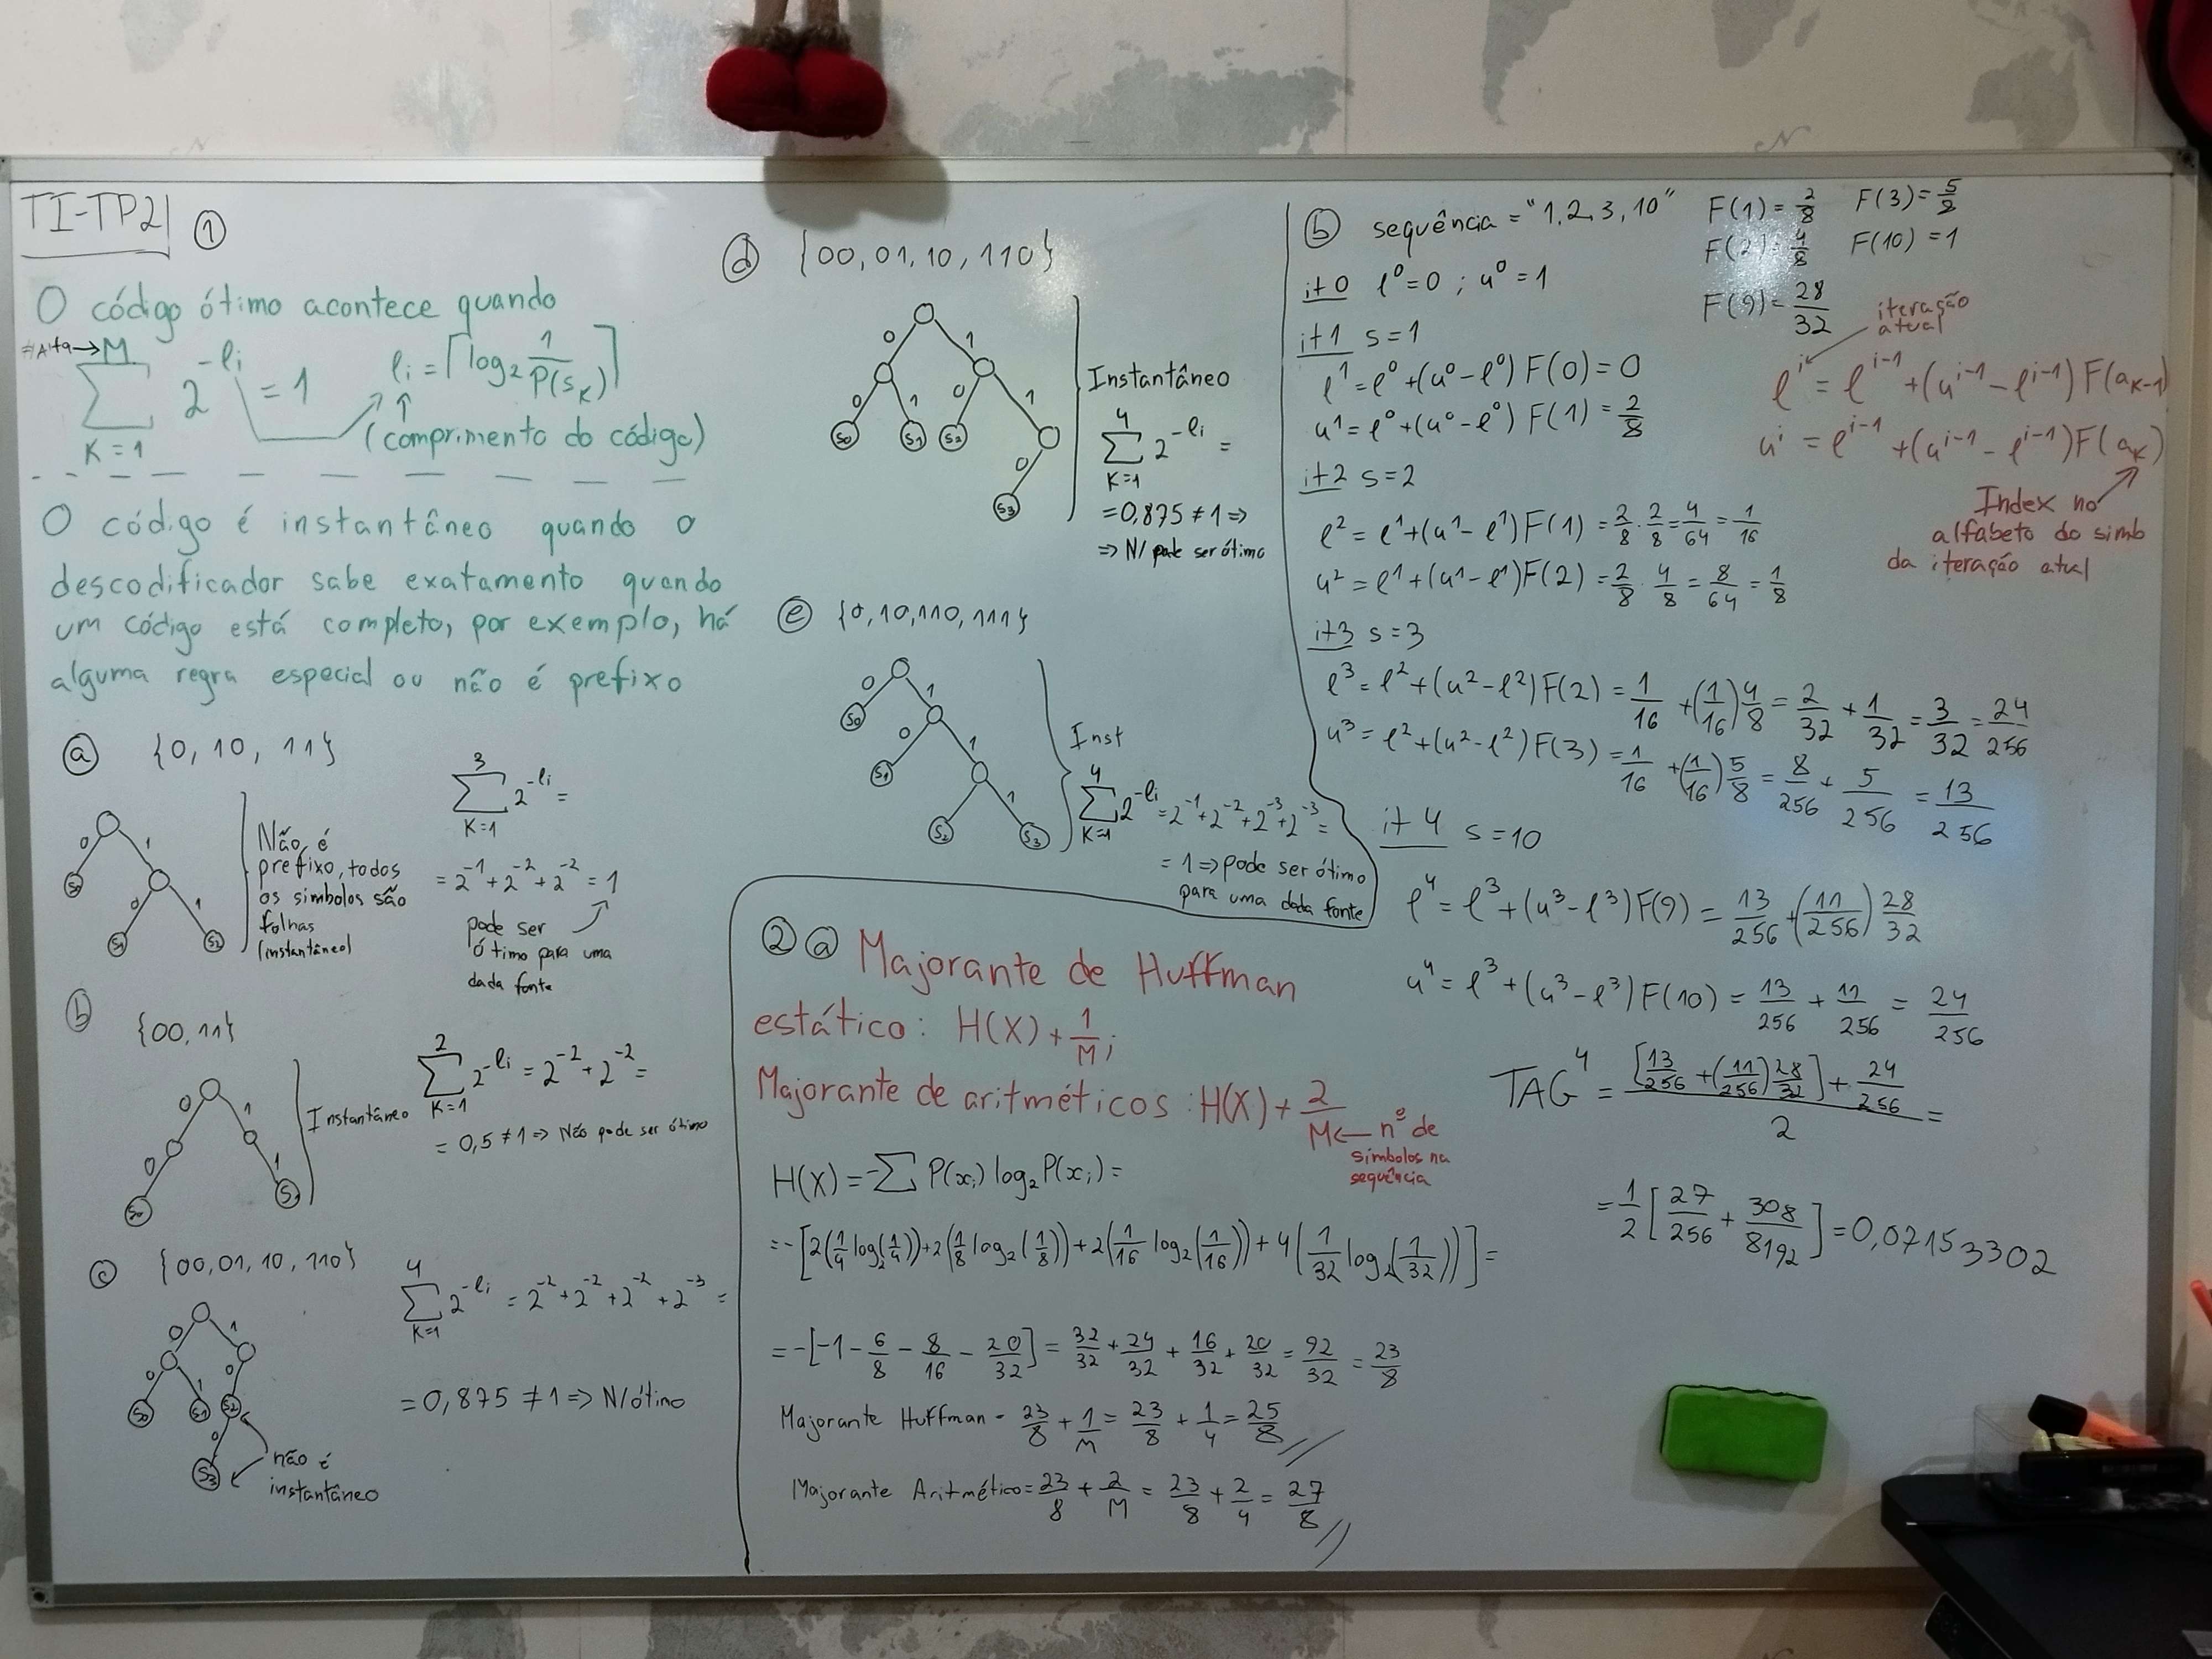 TI-TP2 ①
O código ótimo acontece quando
M
∑ 2^-li = 1 li = ⌈log₂ 1/P(sₖ)⌉
K=1 (comprimento do código)
O código é instantâneo quando o
descodificador sabe exatamento quando
um código está completo, por exemplo, há
alguma regra especial ou não é prefixo
ⓐ {0, 10, 11}
0 1 0 1
S0 S1 S2
Não é
prefixo, todos
os simbolos são
folhas
(instantâneo)
3
∑ 2^-li =
K=1
= 2^-1 + 2^-2 + 2^-2 = 1
pode ser
ótimo para uma
dada fonte
ⓑ {00, 11}
0 1 0 1
S0 S1
Instantâneo
2
∑ 2^-li = 2^-2 + 2^-2 =
K=1
= 0,5 ≠ 1 => Não pode ser ótimo
ⓒ {00, 01, 10, 110}
0 1 0 1 0 0
S0 S1 S2
S3
não é
instantâneo
4
∑ 2^-li = 2^-2 + 2^-2 + 2^-2 + 2^-3 =
K=1
= 0,875 ≠ 1 => N/ótimo
ⓓ {00, 01, 10, 110}
0 1
0 1 0 1
S0 S1 S2 0
S3
Instantâneo
4
∑ 2^-li =
K=1
= 0,875 ≠ 1 =>
=> N/ pode ser ótimo
ⓔ {0, 10, 110, 111}
0 1
S0 0 1
S1 1
S2 S3
Inst
4
∑ 2^-li = 2^-1 + 2^-2 + 2^-3 + 2^-3 =
K=1
= 1 => pode ser ótimo
para uma dada fonte
② ⓐ Majorante de Huffman
estático: H(X) + 1/M;
Majorante de aritméticos: H(X) + 2/M ← nº de
simbolos na
sequência
H(X) = -∑ P(xi) log₂ P(xi) =
= -[2(1/4 log₂(1/4)) + 2(1/8 log₂(1/8)) + 2(1/16 log₂(1/16)) + 4(1/32 log₂(1/32))] =
= -[-1 - 6/8 - 8/16 - 20/32] = 32/32 + 24/32 + 16/32 + 20/32 = 92/32 = 23/8
Majorante Huffman = 23/8 + 1/M = 23/8 + 1/4 = 25/8 //
Majorante Aritmético = 23/8 + 2/M = 23/8 + 2/4 = 27/8 //
ⓑ sequência = "1, 2, 3, 10" F(1) = 2/8 F(3) = 5/8
F(2) = 4/8 F(10) = 1
F(9) = 28/32
it0 l⁰ = 0 ; u⁰ = 1
it1 s = 1
l¹ = l⁰ + (u⁰ - l⁰) F(0) = 0
u¹ = l⁰ + (u⁰ - l⁰) F(1) = 2/8
iteração
atual
lⁱ = lⁱ⁻¹ + (uⁱ⁻¹ - lⁱ⁻¹) F(aₖ₋₁)
uⁱ = lⁱ⁻¹ + (uⁱ⁻¹ - lⁱ⁻¹) F(aₖ)
Index no
alfabeto do simb
da iteração atual
it2 s = 2
l² = l¹ + (u¹ - l¹) F(1) = 2/8 · 2/8 = 4/64 = 1/16
u² = l¹ + (u¹ - l¹) F(2) = 2/8 · 4/8 = 8/64 = 1/8
it3 s = 3
l³ = l² + (u² - l²) F(2) = 1/16 + (1/16) 4/8 = 2/32 + 1/32 = 3/32 = 24/256
u³ = l² + (u² - l²) F(3) = 1/16 + (1/16) 5/8 = 8/256 + 5/256 = 13/256
it4 s = 10
l⁴ = l³ + (u³ - l³) F(9) = 13/256 + (11/256) 28/32
u⁴ = l³ + (u³ - l³) F(10) = 13/256 + 11/256 = 24/256
TAG⁴ = ([13/256 + (11/256) 28/32] + 24/256)/2 =
= 1/2 [27/256 + 308/8192] = 0,07153302